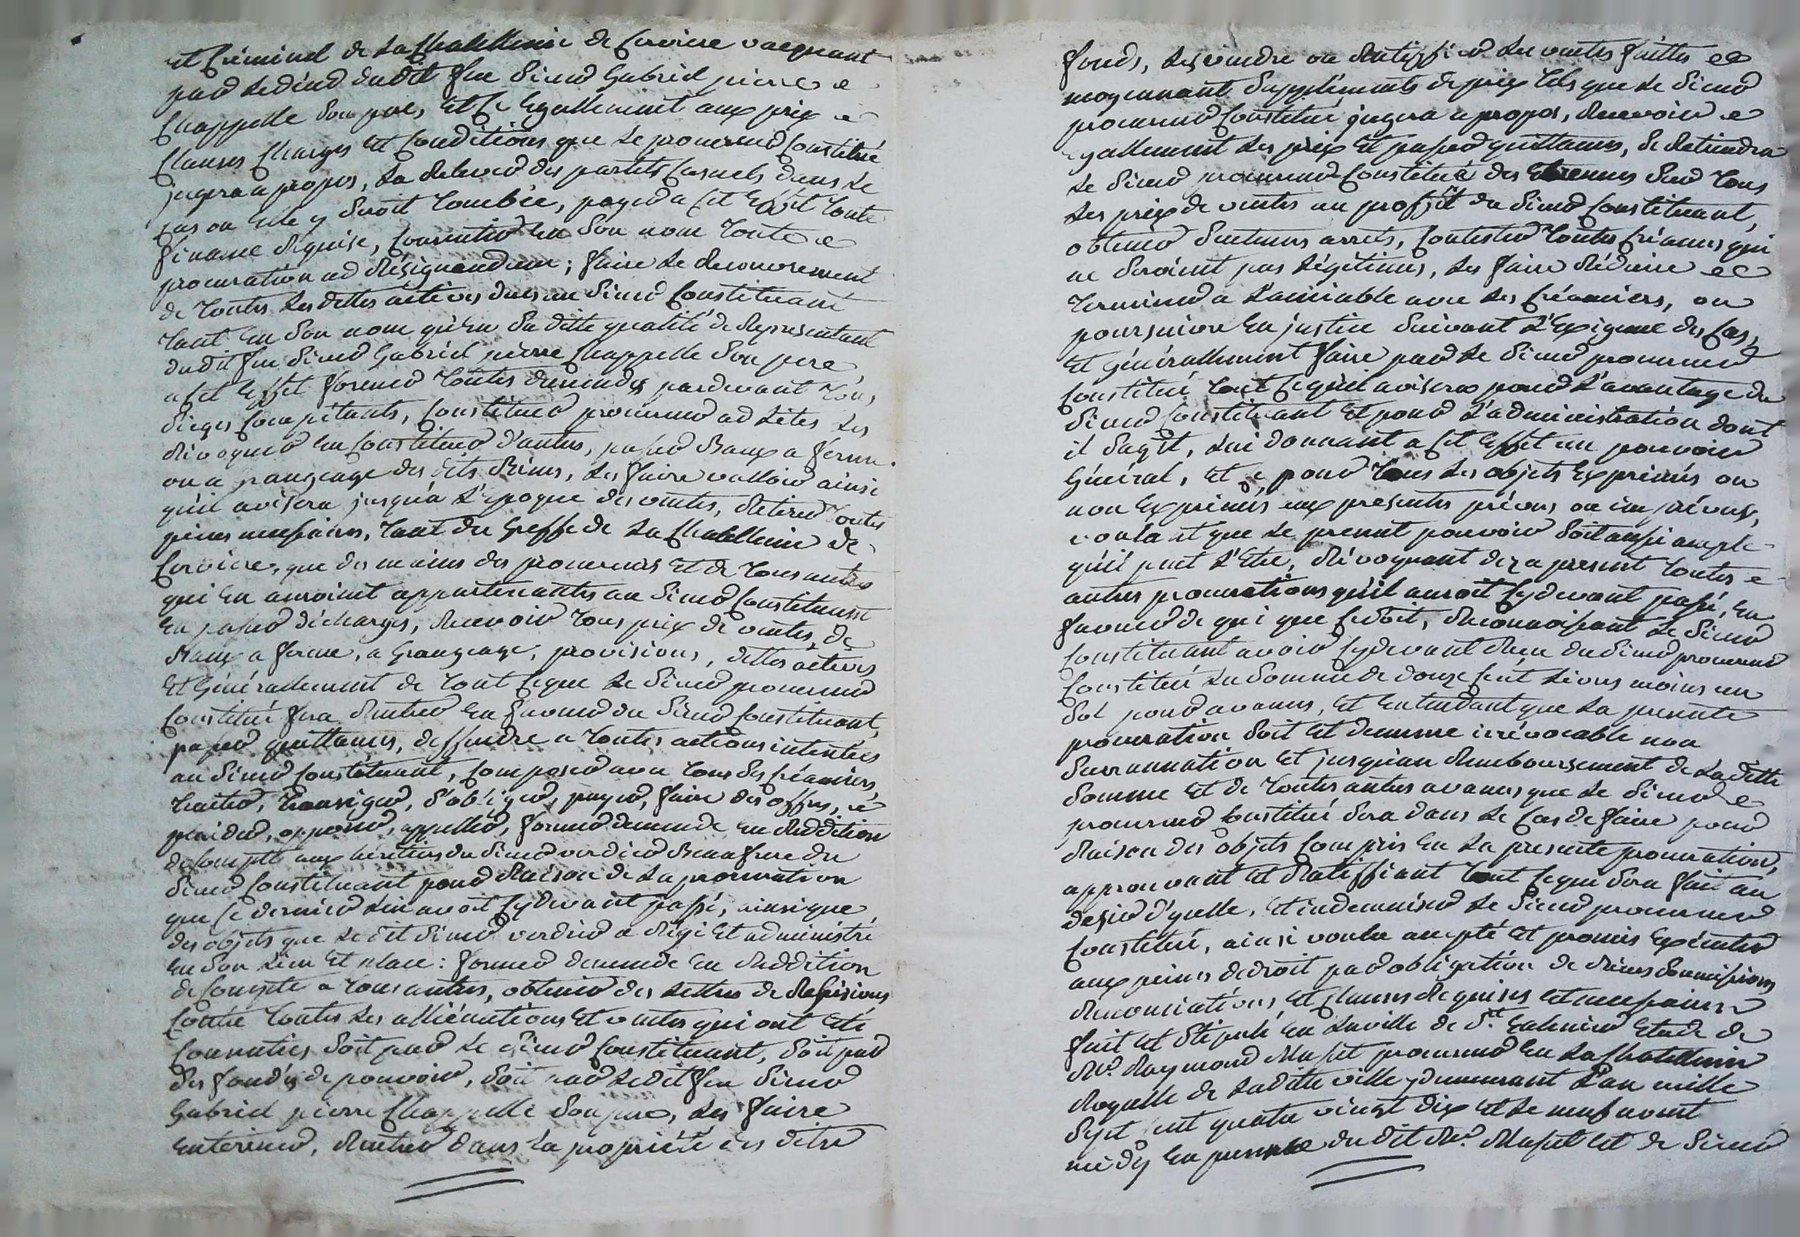 et Criminel de la Chatellenie de Cerviere vacquant
par le déced dudit feu Sieur Gabriel pierre
Chappelle son pere, et ce Egallement aux prix
Clauses Charges et Conditions que le procureur Constitué
jugera a propos, la relever des parties Casuels dans le
cas ou elle y seroit tombée, payer a cet effet toute
finance requise, Consentir en son nom toute
procuration ad resignandum; faire le recouvrement
de toutes les dettes actives dues au Sieur Constituant
tant en son nom qu'en sa ditte qualité de Representant
dudit feu Sieur Gabriel pierre Chappelle son pere
a cet effet former toutes demandes pardevant tous
sieges Competants, Constituer procureur ad lites les
révoquer en Constituer d'autres, passer Baux a ferme
ou a grangeage des dits Biens, les faire valloir ainsi
qu'il avisera jusqu'a l'epoque des ventes, Retirer toutes
pieces necessaires, tant du Greffe de la Chatellenie de
Cerviere, que des mains des procureurs et de tous autres
qui en auroint appartenantes au Sieur Constituant
En passer décharges, Recevoir tous prix de ventes, de
Baux a ferme, a Grangeage, provisions, dettes actives
Et Générallement de tout ce que le Sieur procureur
Constitué fera Rentrer en faveur du Sieur Constituant,
passer quittances, deffendre a toutes actions intentées
au Sieur Constituant, Composer avec tous les Créanciers,
traiter, transiger, s'obliger, payer, faire des offres,
plaider, opposer, appeller, former demande en Reddition
de Compte aux héritiers du Sieur verdier Beaufrere du
Sieur Constituant pour Raison de la procuration
que ce dernier lui avoit cydevant passé, ainsi que
des objets que le dit Sieur verdier a Régi et administré
en son lieu et place: former demande en Reddition
de Compte a tous autres, obtenir des lettres de Resisions
Contre toutes les alliénations et ventes qui ont eté
Consenties soit par le Sieur Constituant, soit par
des fondés de pouvoir, soit par ledit feu Sieur
Gabriel pierre Chappelle son pere, les faire
enteriner, Rentrer dans la propriété des dits
fonds, les vendre ou Ratiffier les ventes faittes
moyennant Supplements de prix tels que le Sieur
procureur Constitué jugera a propos, Recevoir
egallement les prix et passer quittances, se Retiendra
le Sieur procureur Constitué des Etrennes sur tous
les prix de ventes au proffit du Sieur Constituant,
obtenir Sentences arrets, Contester toutes Créances qui
ne seroint pas légitimes, les faire Réduire
terminer a l'aimiable avec les Créanciers, ou
poursuivre en justice suivant l'Exigence des Cas,
Et Générallement faire par le Sieur procureur
Constitué tout ce qu'il avisera pour l'avantage du
Sieur Constituant et pour l'administration dont
il s'agit, lui donnant a cet effet un pouvoir
Général, et ce pour tous les objets Exprimés ou
non Exprimés aux presentes prévus ou imprévus,
voulant que le present pouvoir soit aussi ample
qu'il peut l'Etre, Révoquant dez a present toutes
autres procurations qu'il auroit cydevant passé, en
faveur de qui que ce soit, Reconnoissant le Sieur
Constituant avoir cydevant Recu du Sieur procureur
Constitué la Somme de douze Cent livres moins un
Sol pour avances, et entendant que la presente
procuration soit et demeure irrévocable non
Surrannation et jusqu'au Remboursement de laditte
Somme et de toutes autres avances que le Sieur
procureur Constitué sera dans le Cas de faire pour
Raison des objets Compris en la presente procuration,
approuvant et Ratiffiant tout ce qui sera fait au
desir d'ycelle, et indemniser le Sieur procureur
Constitué, ainsi voulu accepté et promis Exécuter
aux peines de droit par obligation de Biens Soumissions
Renonciations, et Clauses Requises et necessaires
fait et Stipulé en la ville de St. Galmier Etude de
Me. Raymond procureur en la Chatellenie
Royalle de laditte ville y demeurant l'an mille
Sept cent quatre vingt dix et le neuf avant
midy en presence dudit Me. et de Sieur